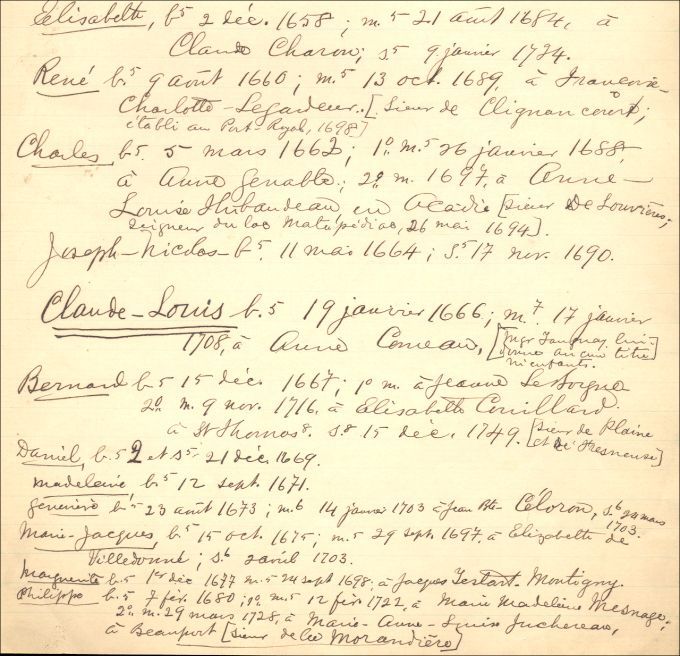 Elisabeth, b.5 2 déc. 1658; m.5 21 août 1684, à
Claude Charon; s5 9 janvier 1724.
René b.5 9 août 1660; m.5 13 oct. 1689, à Françoise-
Charlotte-Legardeur. [Sieur de Clignancourt;
établi au Port-Royal, 1698]
Charles, b.5. 5 mars 1662; 1o. m.5 26 janvier 1688,
à Anne Genable; 2o. m. 1697, à Anne-
Louise Thibaudeau en Acadie [Sieur De Louvières;
Seigneur du lac Matapédiac, 26 mai 1694].
Joseph-Nicolas-b5. 11 mai 1664; S.5 17 nov. 1690.
Claude-Louis b.5 19 janvier 1666; m.7 17 janvier
1708, à Anne Comeau, [Mgr Tanguay lui
donne aucun titre
ni enfants.
Bernard b.5 15 déc. 1667; 1o m. à Jeanne LeBorgne
2o. m. 9 nov. 1716. à Elisabeth Couillard.
à St Thomas8. S.8 15 déc. 1749. [Sieur de Plaine
et de Fresneuse]
Daniel, b.5 2 et s5. 21 déc. 1669.
Madeleine b.5 12 sept. 1671.
Geneviève b.5 23 août 1673; m.6 14 janvier 1703 à Jean Bte- Céloron, s.6 24 mars
1703.
Marie-Jacques, b.5 15 oct. 1675; m.5 29 sept. 1697, à Elizabeth de
Villedonné; s.6 2 avril 1703.
Marguerite b.5 1er déc 1677 m.5 24 sept 1698, à Jacques Testart-Montigny.
Philippe b.5 7 fév. 1680; 1o. m.5 12 fév 1722, à Marie Madeleine Mesnage;
2o. m. 29 mars 1728, à Marie-Anne-Louise Juchereau,
à Beauport [Sieur de la Morandière]